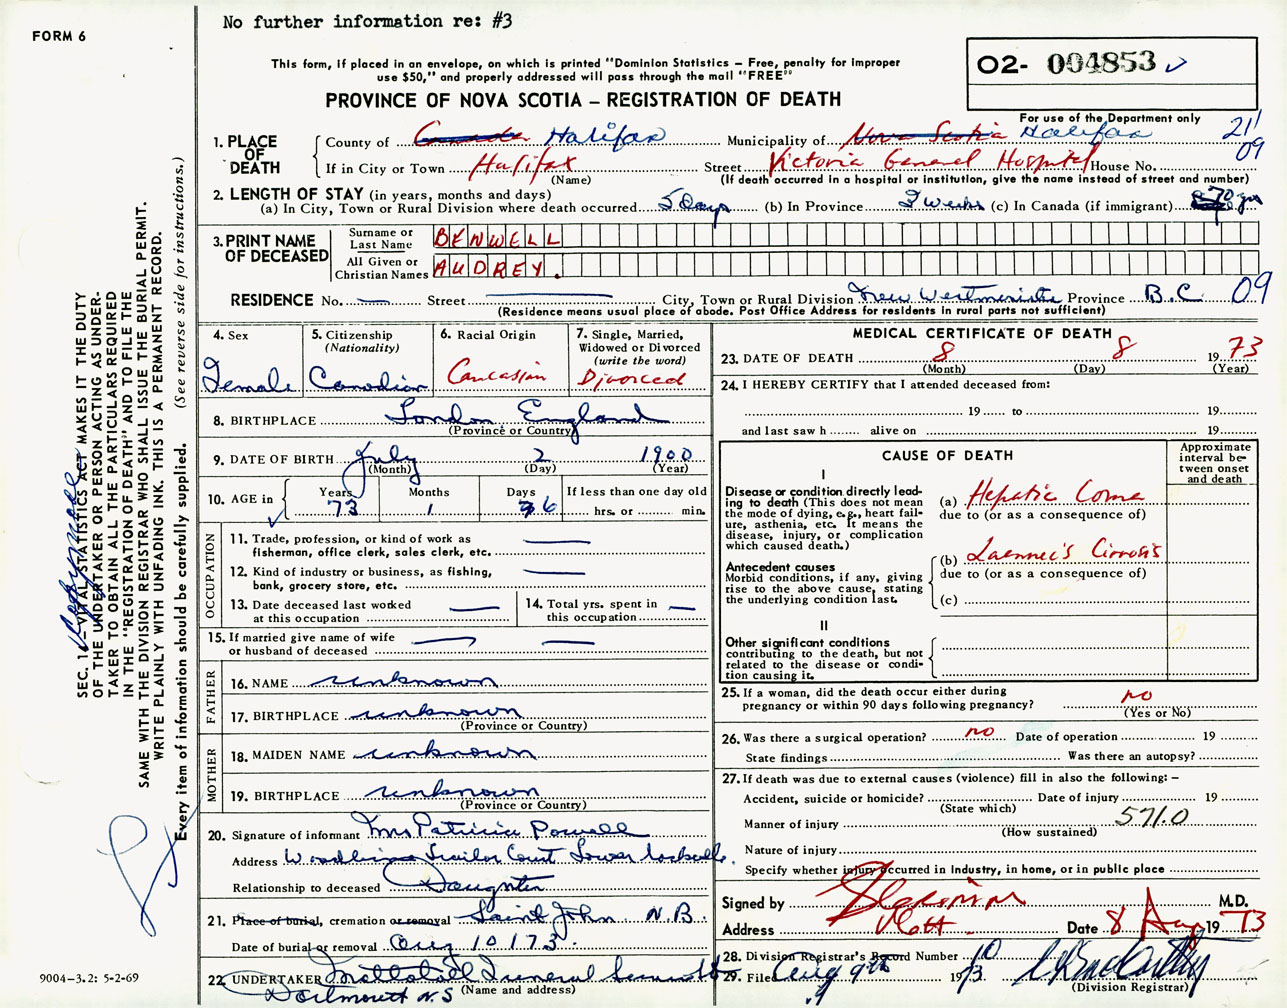 No further information re: #3
FORM 6
This form, if placed in an envelope, on which is printed "Dominion Statistics – Free, penalty for improper
use $50," and properly addressed will pass through the mail "FREE"
02- 004853
PROVINCE OF NOVA SCOTIA – REGISTRATION OF DEATH
For use of the Department only
211
09
1. PLACE OF DEATH
County of Canada Halifax Municipality of Nova Scotia Halifax
If in City or Town Halifax (Name) Street Victoria General Hospital House No.
(If death occurred in a hospital or institution, give the name instead of street and number)
2. LENGTH OF STAY (in years, months and days)
(a) In City, Town or Rural Division where death occurred 5 Days (b) In Province 2 weeks (c) In Canada (if immigrant) 70 yrs
3. PRINT NAME OF DECEASED
Surname or Last Name BENWELL
All Given or Christian Names AUDREY.
RESIDENCE No. — Street — City, Town or Rural Division New Westminster Province B.C. 09
(Residence means usual place of abode. Post Office Address for residents in rural parts not sufficient)
4. Sex
Female
5. Citizenship
(Nationality)
Canadian
6. Racial Origin
Caucasian
7. Single, Married,
Widowed or Divorced
(write the word)
Divorced
8. BIRTHPLACE London England
(Province or Country)
9. DATE OF BIRTH July 2 1900
(Month) (Day) (Year)
10. AGE in
Years 73
Months 1
Days 6
If less than one day old
hrs. or min.
OCCUPATION
11. Trade, profession, or kind of work as
fisherman, office clerk, sales clerk, etc. —
12. Kind of industry or business, as fishing,
bank, grocery store, etc. —
13. Date deceased last worked
at this occupation —
14. Total yrs. spent in
this occupation —
15. If married give name of wife
or husband of deceased — —
FATHER
16. NAME unknown
17. BIRTHPLACE unknown
(Province or Country)
MOTHER
18. MAIDEN NAME unknown
19. BIRTHPLACE unknown
(Province or Country)
20. Signature of informant Mrs Patricia Powell
Address Trailer Court Lower Sackville.
Relationship to deceased Daughter
21. Place of burial, cremation or removal Saint John N.B.
Date of burial or removal Aug 10 173.
22. UNDERTAKER Funeral
(Name and address)
Dartmouth N.S
MEDICAL CERTIFICATE OF DEATH
23. DATE OF DEATH 8 8 1973
(Month) (Day) (Year)
24. I HEREBY CERTIFY that I attended deceased from:
19 to 19
and last saw h alive on 19
CAUSE OF DEATH
Approximate
interval be-
tween onset
and death
I
Disease or condition directly lead-
ing to death (This does not mean
the mode of dying, e.g., heart fail-
ure, asthenia, etc. It means the
disease, injury, or complication
which caused death.)
(a) Hepatic Coma
due to (or as a consequence of)
Antecedent causes
Morbid conditions, if any, giving
rise to the above cause, stating
the underlying condition last.
(b) Laennec's Cirrosis
due to (or as a consequence of)
(c)
II
Other significant conditions
contributing to the death, but not
related to the disease or condi-
tion causing it.
25. If a woman, did the death occur either during
pregnancy or within 90 days following pregnancy? no
(Yes or No)
26. Was there a surgical operation? no Date of operation 19
State findings Was there an autopsy?
27. If death was due to external causes (violence) fill in also the following: –
Accident, suicide or homicide? Date of injury 19
(State which)
Manner of injury 571.0
(How sustained)
Nature of injury
Specify whether injury occurred in Industry, in home, or in public place
Signed by M.D.
Address Date 8 Aug 1973
28. Division Registrar's Record Number
29. Filed Aug 9th 1973
(Division Registrar)
SEC. 1 – VITAL STATISTICS ACT MAKES IT THE DUTY
OF THE UNDERTAKER OR PERSON ACTING AS UNDER-
TAKER TO OBTAIN ALL THE PARTICULARS REQUIRED
IN THE "REGISTRATION OF DEATH" AND TO FILE THE
SAME WITH THE DIVISION REGISTRAR WHO SHALL ISSUE THE BURIAL PERMIT.
WRITE PLAINLY WITH UNFADING INK. THIS IS A PERMANENT RECORD.
Every item of information should be carefully supplied. (See reverse side for instructions.)
9004–3.2: 5-2-69